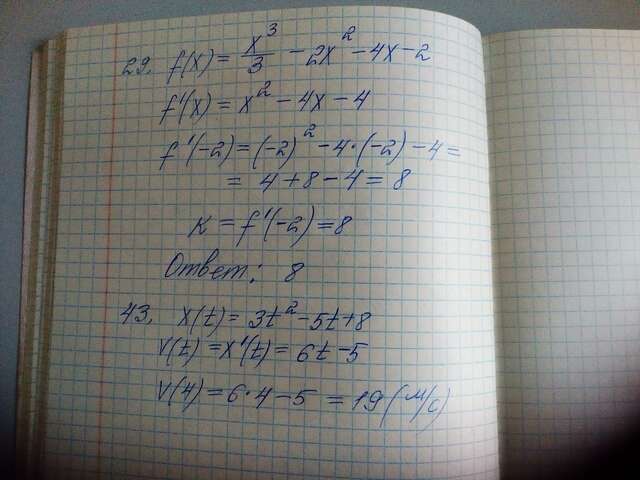 29. f(x) = x³/3 - 2x² - 4x - 2
f'(x) = x² - 4x - 4
f'(-2) = (-2)² - 4·(-2) - 4 =
= 4 + 8 - 4 = 8
K = f'(-2) = 8
Ответ: 8
43. x(t) = 3t² - 5t + 8
v(t) = x'(t) = 6t - 5
v(4) = 6·4 - 5 = 19 (м/с)